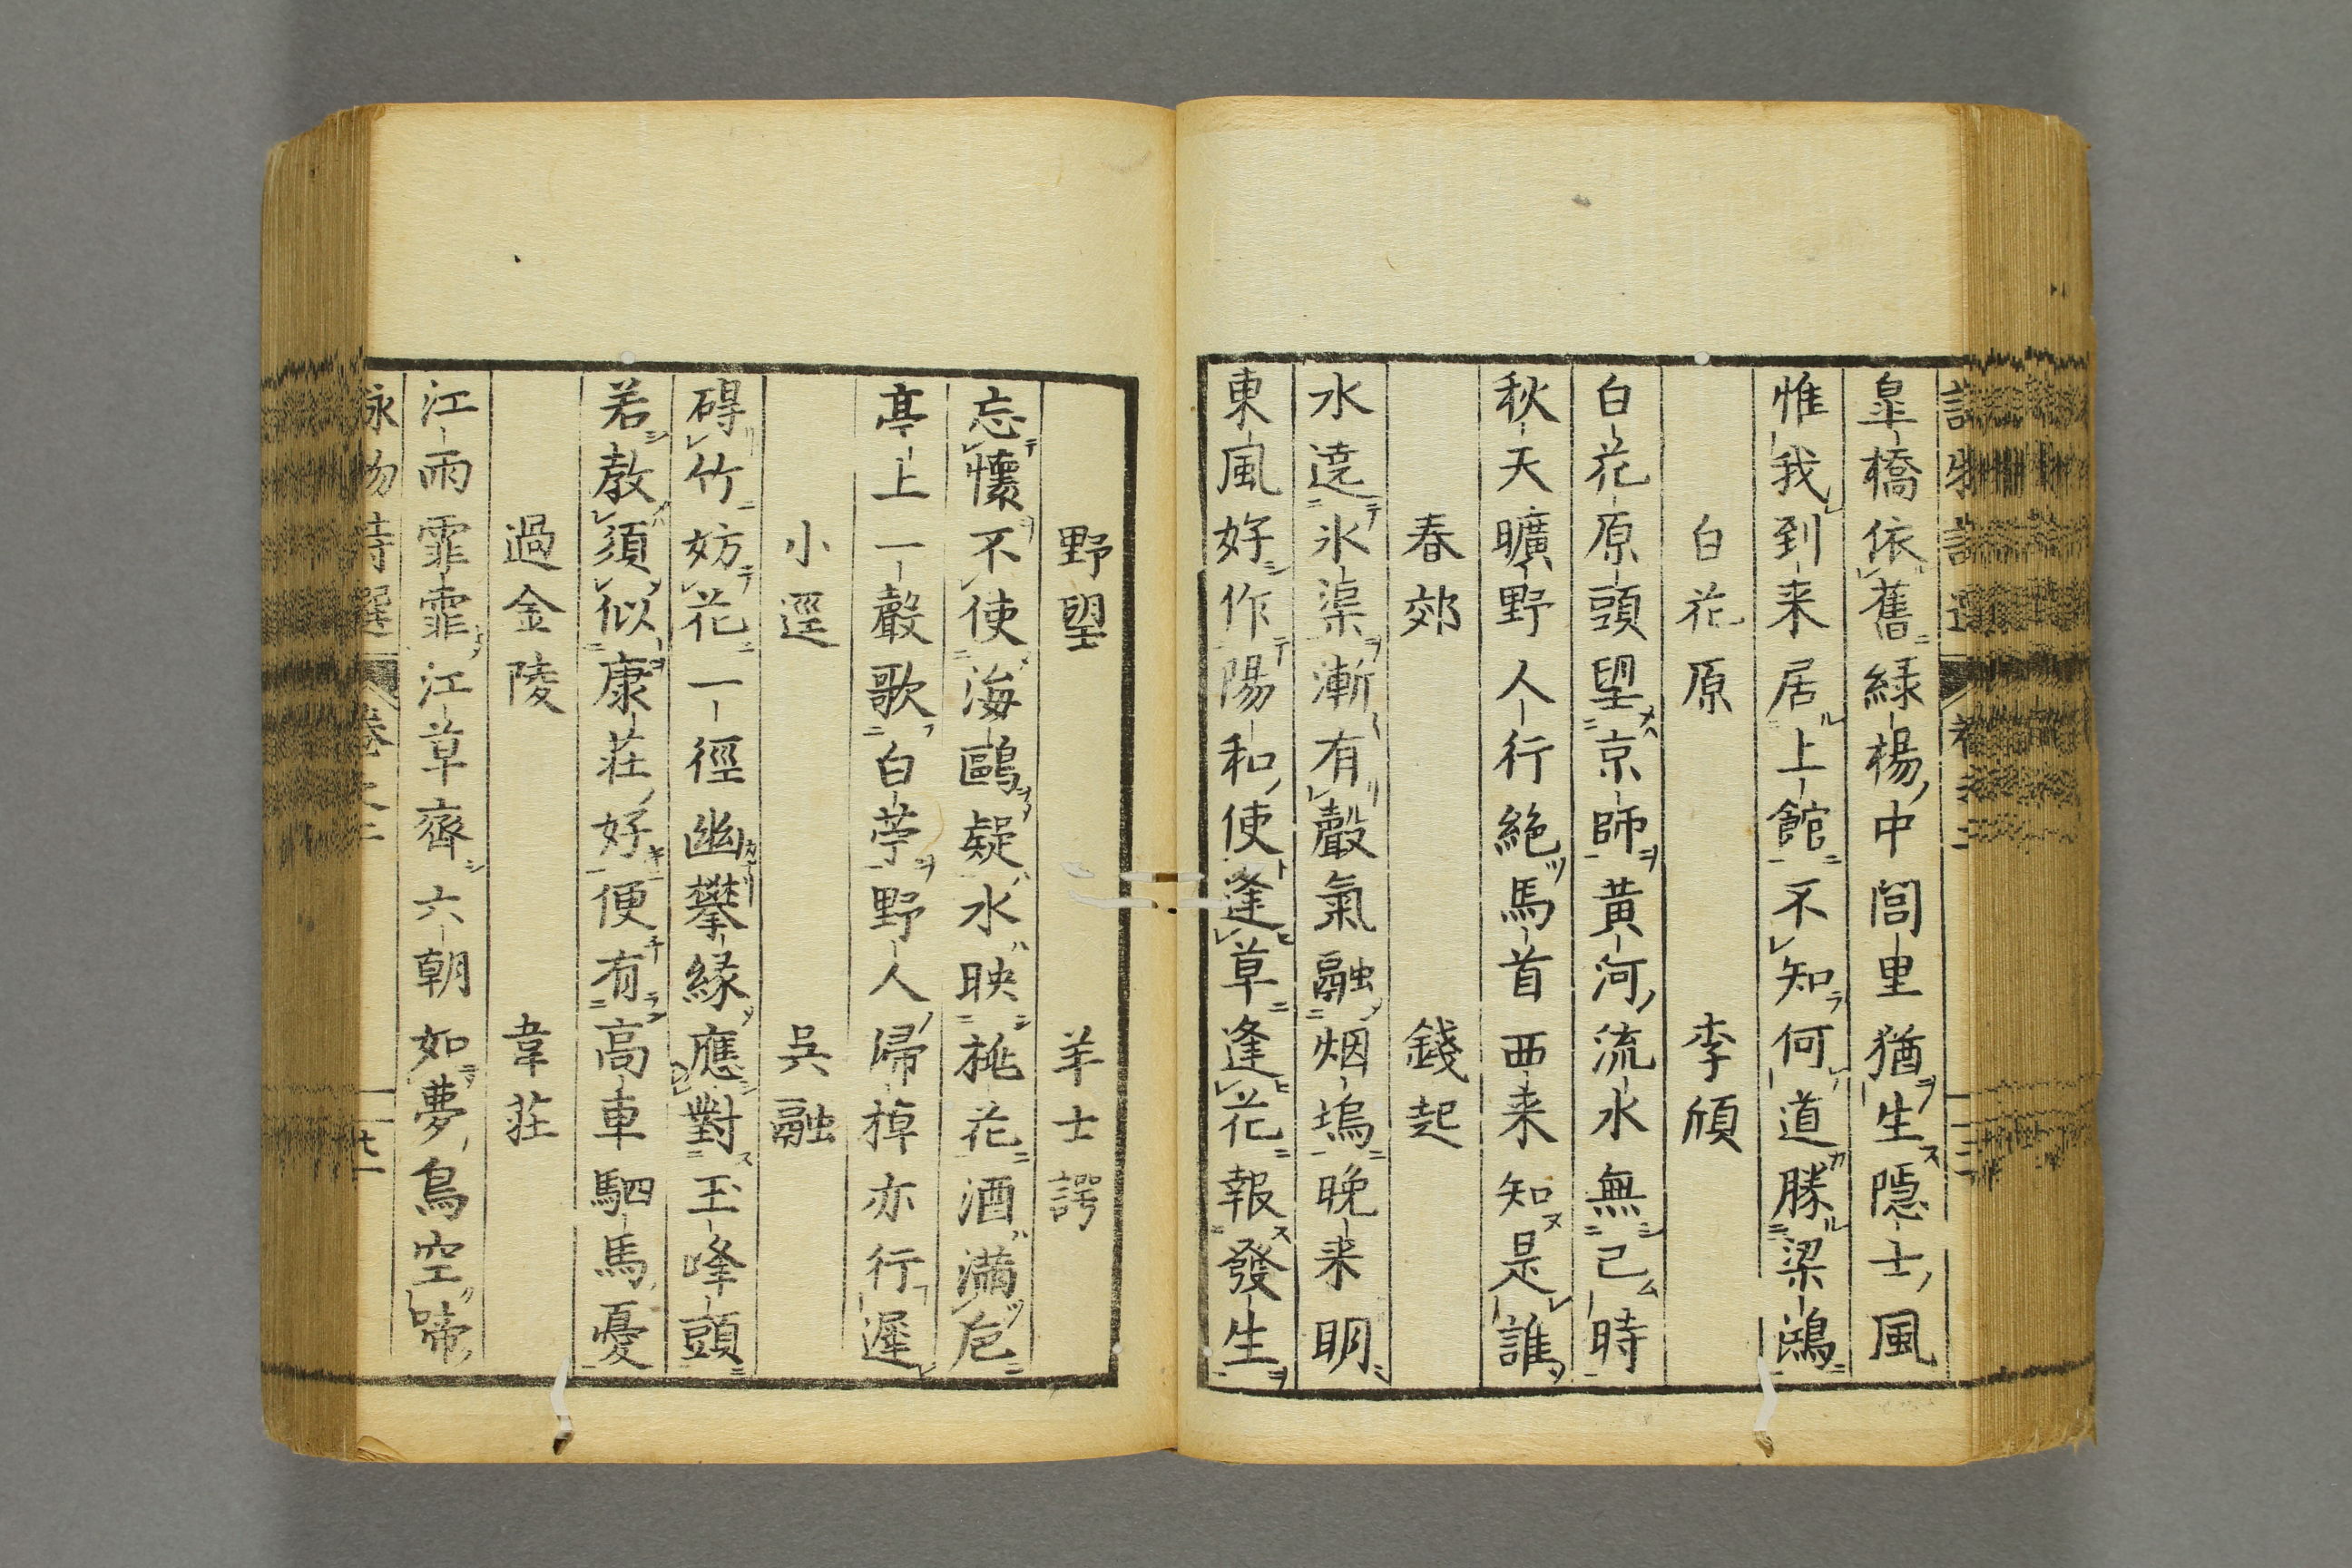 皐橋依舊綠楊中閭里猶生隱士風
惟我到来居上館不知何道勝梁鴻
白花原　李頎
白花原頭望京師黃河流水無已時
秋天曠野人行絶馬首西来知是誰
春郊　錢起
水遶氷渠漸有聲氣融烟塢晚来明
東風好作陽和使逢草逢花報發生
野望　羊士諤
忘懷不使海鷗疑水映桃花酒滿卮
亭上一聲歌白苧野人歸棹亦行遲
小逕　吳融
碍竹妨花一徑幽攀緣應對玉峰頭
若教須似康莊好便有高車駟馬憂
過金陵　韋莊
江雨霏霏江草齊六朝如夢鳥空啼
詠物詩選　卷之二